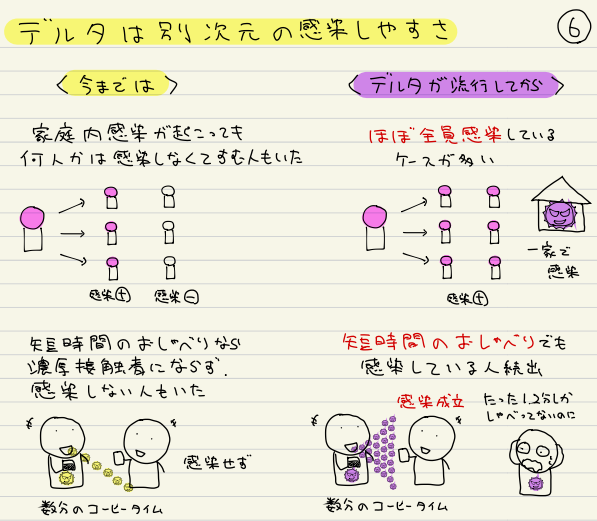 デルタは別次元の感染しやすさ
6
今までは
家庭内感染が起こっても
何人かは感染しなくてすむ人もいた
感染+
感染−
短時間のおしゃべりなら
濃厚接触者にならず、
感染しない人もいた
感染せず
数分のコーヒータイム
デルタが流行してから
ほぼ全員感染している
ケースが多い
一家で
感染
感染+
短時間のおしゃべりでも
感染している人続出
感染成立
たった1、2分しか
しゃべってないのに
数分のコーヒータイム